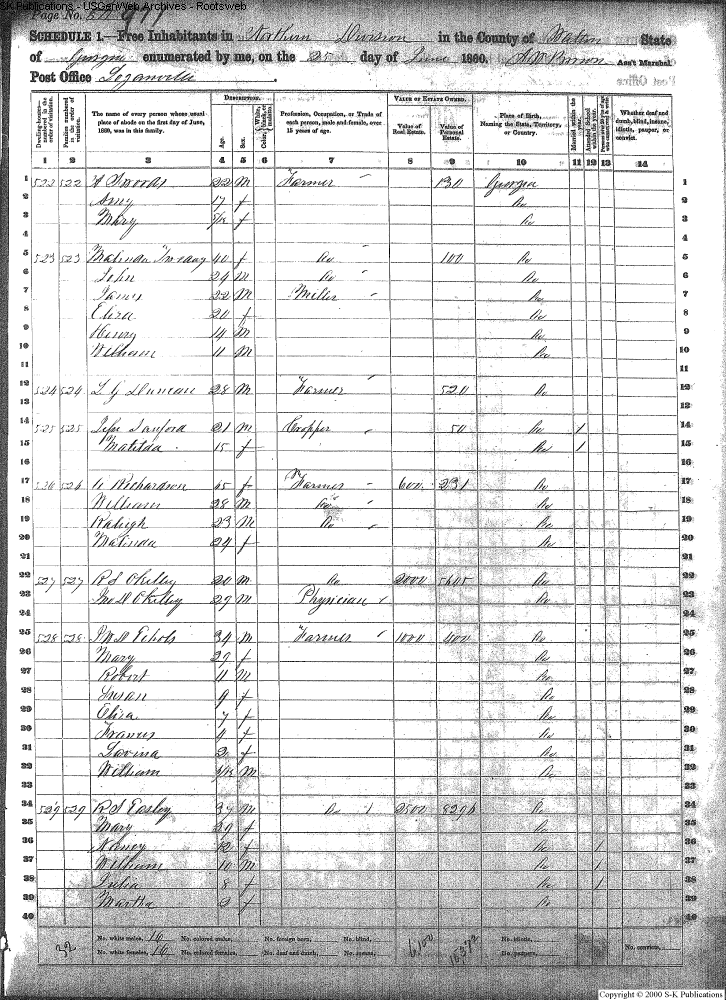 S-K Publications - USGenWeb Archives - Rootsweb
Page No.
SCHEDULE 1.—Free Inhabitants in Northern Division in the County of Walton State
of Georgia enumerated by me, on the 25 day of June 1860. Ass't Marshal
Post Office Loganville
Dwelling-houses—numbered in the order of visitation.
Families numbered in the order of visitation.
The name of every person whose usual place of abode on the first day of June, 1860, was in this family.
DESCRIPTION.
Age.
Sex.
Color, White, black, or mulatto.
Profession, Occupation, or Trade of each person, male and female, over 15 years of age.
VALUE OF ESTATE OWNED.
Value of Real Estate.
Value of Personal Estate.
Place of Birth, Naming the State, Territory, or Country.
Married within the year.
Attended School within the year.
Whether deaf and dumb, blind, insane, idiotic, pauper, or convict.
1 2 3 4 5 6 7 8 9 10 11 12 13 14
1 522 522 Woods 22 M Farmer 130 Georgia 1
2 Amy 17 f Do 2
3 Mary f Do 3
4 4
5 523 523 Malinda 40 f Do 100 Do 5
6 John 24 M Do Do 6
7 James 22 M Miller Do 7
8 Eliza 20 f Do 8
9 Henry 14 M Do 9
10 William 11 M Do 10
11 11
12 524 524 L G Duncan 28 M Farmer 520 Do 12
13 13
14 525 525 Sanford 21 M Cropper 50 Do 1 14
15 Matilda 15 f Do 1 15
16 16
17 526 526 Richardson 45 f Farmer 600 231 Do 17
18 William 28 M Do Do 18
19 Raleigh 23 M Do Do 19
20 Malinda 24 f Do 20
21 21
22 527 527 R S OKelley 20 M Do 2000 5605 Do 22
23 Jno D OKelley 29 M Physician Do 23
24 24
25 528 528 Echols 34 M Farmer 1000 400 Do 25
26 Mary 29 f Do 26
27 Robert 11 M Do 27
28 Susan 9 f Do 28
29 Eliza 7 f Do 29
30 Frances 4 f Do 30
31 Lovina f Do 31
32 William M Do 32
33 33
34 529 529 R S Easley 37 M Do 2500 8296 Do 34
35 Mary 29 f Do 35
36 Nancy 12 f Do 1 36
37 William 10 M Do 1 37
38 Julia 8 f Do 1 38
39 Martha 3 f Do 39
40 40
32 No. white males, 16 No. colored males, No. foreign born, No. blind, 6,100 16372 No. idiotic, No. convicts,
No. white females, 16 No. colored females, No. deaf and dumb, No. insane, No. paupers,
Copyright © 2000 S-K Publications